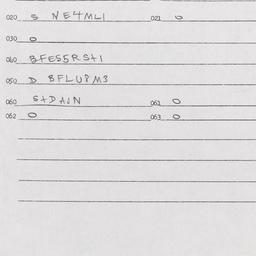 020 S NE4MLI 021 0
030 0
040 BFES5RS+1
050 D BFLU8M3
060 S+DAJN 061 0
062 0 063 0